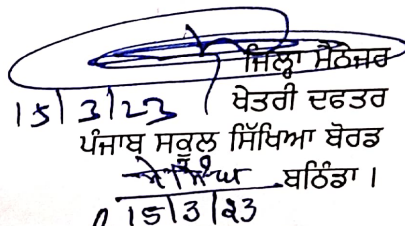 ਜਿਲ੍ਹਾ ਮੈਨੇਜਰ
15/3/23 ਖੇਤਰੀ ਦਫਤਰ
ਪੰਜਾਬ ਸਕੂਲ ਸਿੱਖਿਆ ਬੋਰਡ
ਬਠਿੰਡਾ।
15/3/23